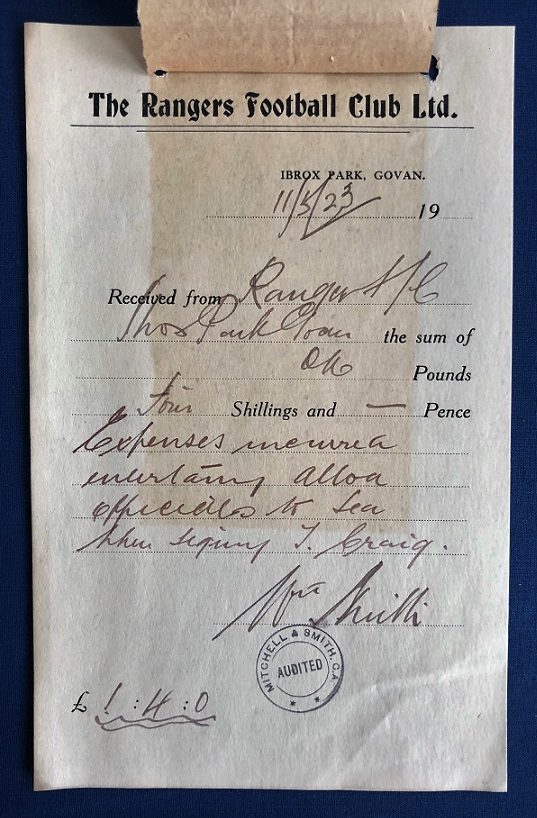 The Rangers Football Club Ltd.
IBROX PARK, GOVAN.
11/5/23 19
Received from Rangers F/C
Ibrox Park Govan the sum of
One Pounds
Four Shillings and — Pence
Expenses incurred
entertaing Alloa
officials to tea
when signing T. Craig.
Wm Smith
MITCHELL & SMITH. C.A.
AUDITED
£ 1 : 4 : 0